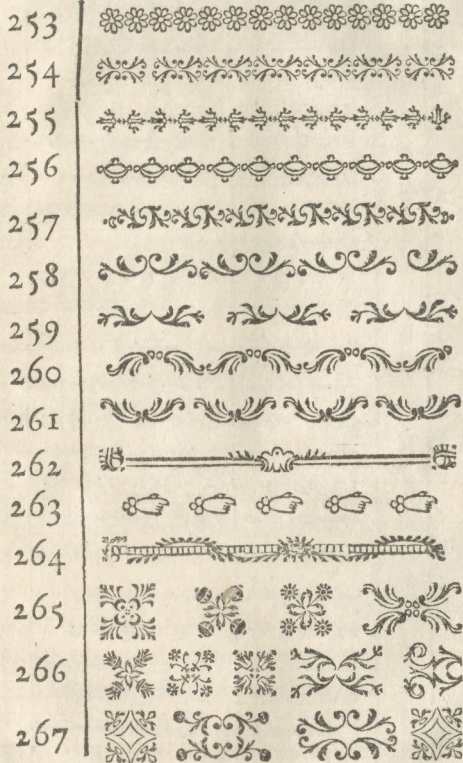 253
254
255
256
257
258
259
260
261
262
263
264
265
266
267